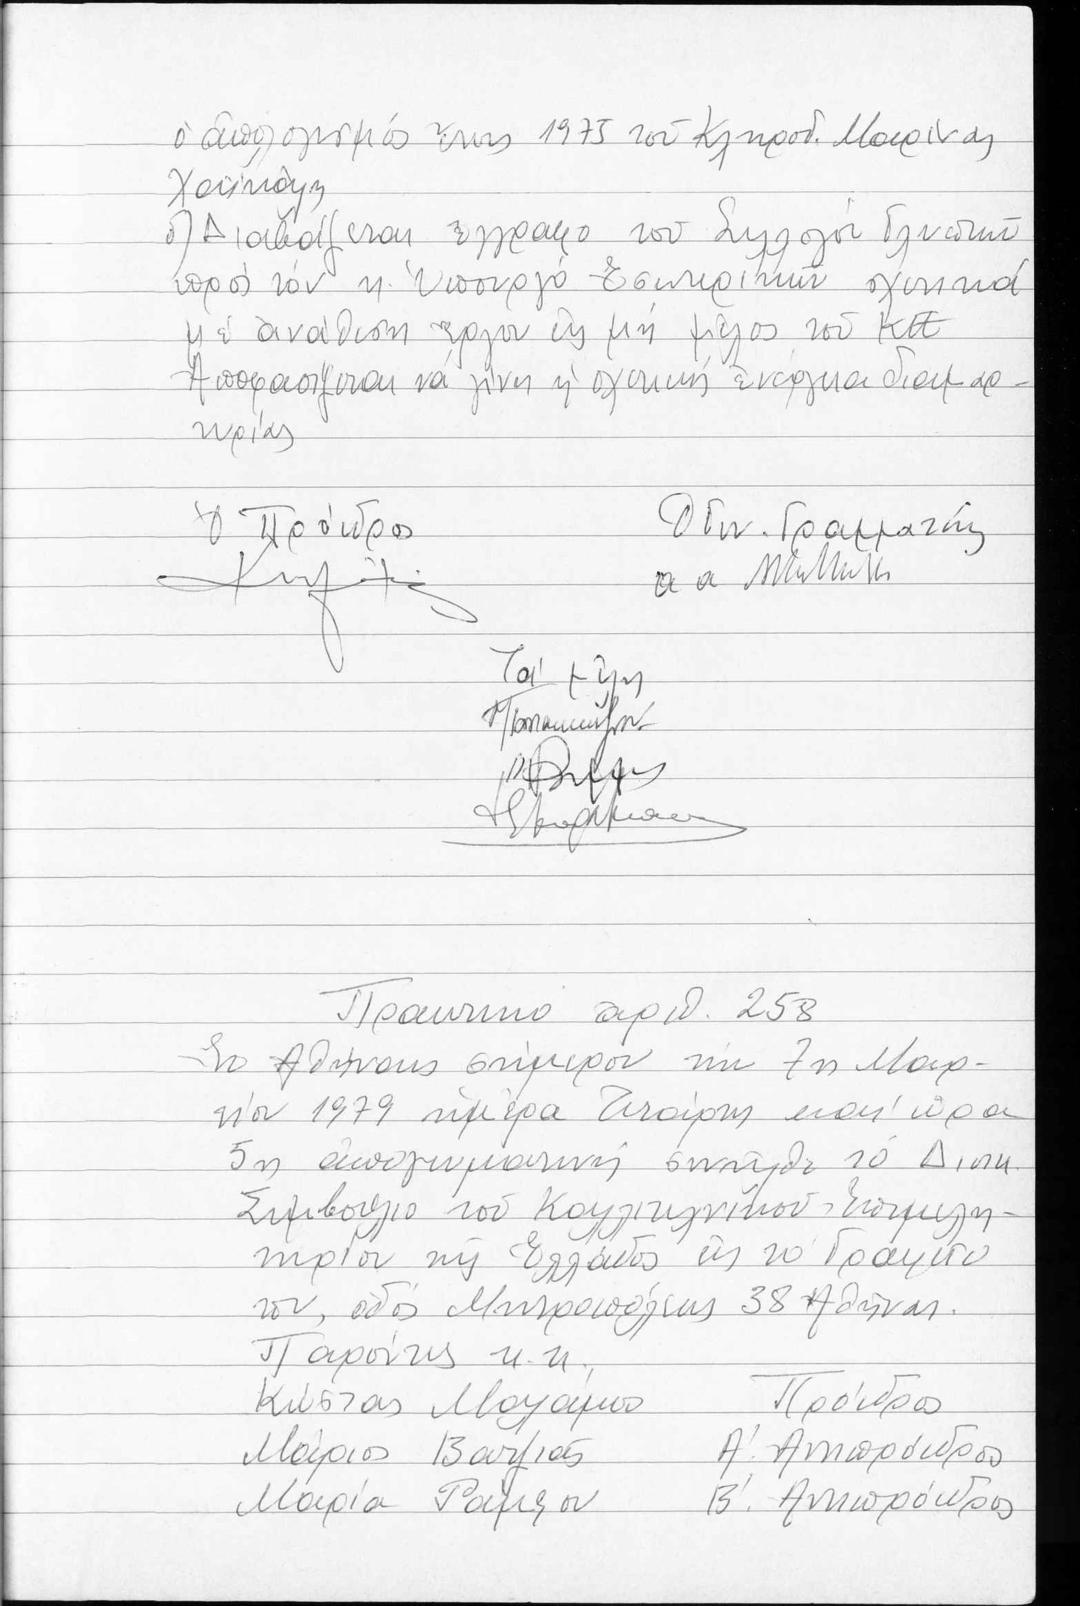 ὁ ἀπολογισμός ἔτους 1975 τοῦ Κληροδ. Μαρίνας
δ) Διαβάζεται ἔγγραφο τοῦ Συλλόγου Γλυπτῶν
πρός τόν κ. Ὑπουργό Ἐσωτερικῶν σχετικά
μέ ἀνάθεση ἔργου εἰς μή μέλος τοῦ ΚΕΕ
Ἀποφασίζεται νά γίνη ἡ σχετική ἐνέργεια διαμαρ-
τυρίας
Ὁ Πρόεδρος Ὁ Γεν. Γραμματεύς
α α
Τά μέλη
Πρακτικό ἀριθ. 258
Στό Ἀθήνας σήμερον τήν 7η Μαρ-
τίου 1979 ἡμέρα Τετάρτη καί ὥρα
5η ἀπογευματινή συνῆλθε τό Διοικ.
Συμβούλιο τοῦ Καλλιτεχνικοῦ Ἐπιμελη-
τηρίου τῆς Ἑλλάδος εἰς τό Γραφεῖο
του, ὁδός Μητροπόλεως 38 Ἀθῆναι.
Παρόντες κ.κ.
Κώστας Μαλάμος Πρόεδρος
Μάριος Βατζιᾶς Α΄. Ἀντιπρόεδρος
Μαρία Β΄. Ἀντιπρόεδρος